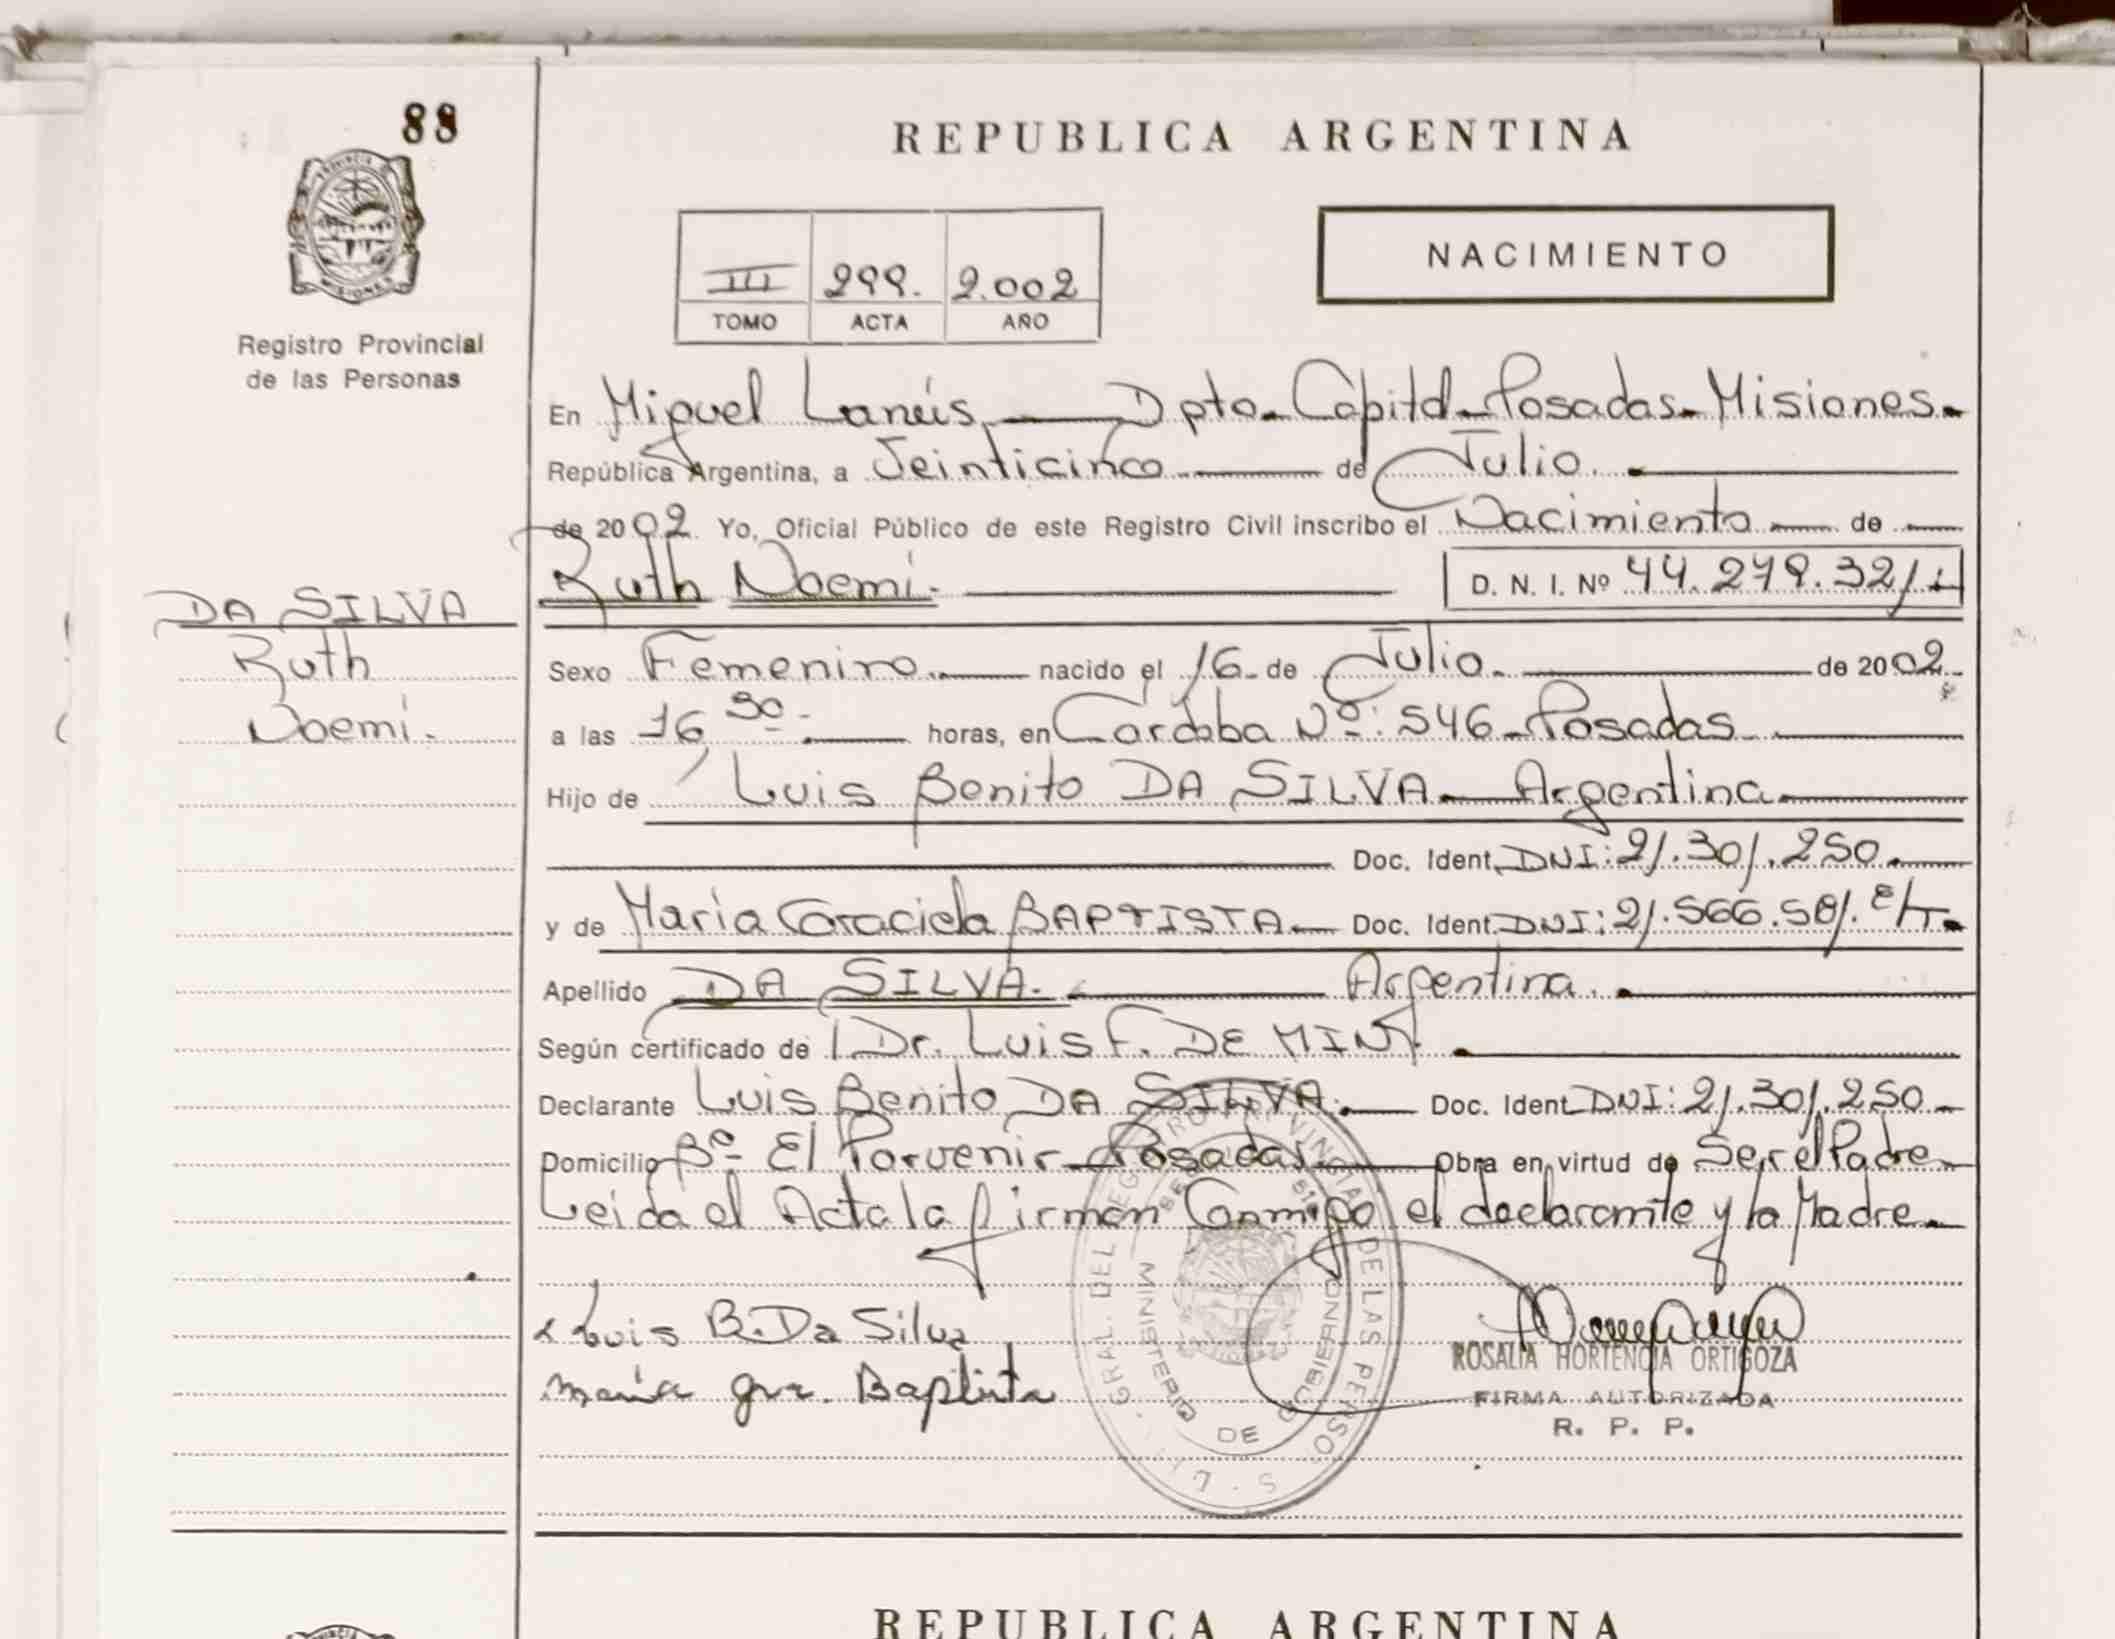 88
REPUBLICA ARGENTINA
PROVINCIA DE
MISIONES
Registro Provincial
de las Personas
NACIMIENTO
III 299. 2.002
TOMO ACTA AÑO
En Miguel Lanús. Dpto. Capital - Posadas - Misiones.
República Argentina, a Veinticinco de Julio.
de 2002. Yo, Oficial Público de este Registro Civil inscribo el Nacimiento de
Ruth Noemi. D. N. I. Nº 44.279.321
DA SILVA
Ruth
Noemi.
Sexo Femenino. nacido el 16 de Julio. de 2002
a las 16 30 horas, en Cordoba Nº: 546 - Posadas
Hijo de Luis Benito DA SILVA - Argentina
Doc. Ident. DNI: 21.301.250.
y de Maria Graciela BAPTISTA Doc. Ident. DNI: 21.566.581. E/T.
Apellido DA SILVA. Argentina.
Según certificado de Dr. Luis F. DE
Declarante Luis Benito DA SILVA. Doc. Ident DNI: 21.301.250
Domicilio Bº El Porvenir - Posadas. Obra en virtud de Ser el Padre
Leida el Acta la firman Conmigo el declarante y la Madre
Luis B. Da Silva
maria gra. Baptista
ROSALIA HORTENCIA ORTIGOZA
FIRMA AUTORIZADA
R. P. P.
GRAL. DEL REGISTRO PROVINCIAL DE LAS PERSO
MINISTERIO DE GOBIERNO
REPUBLICA ARGENTINA